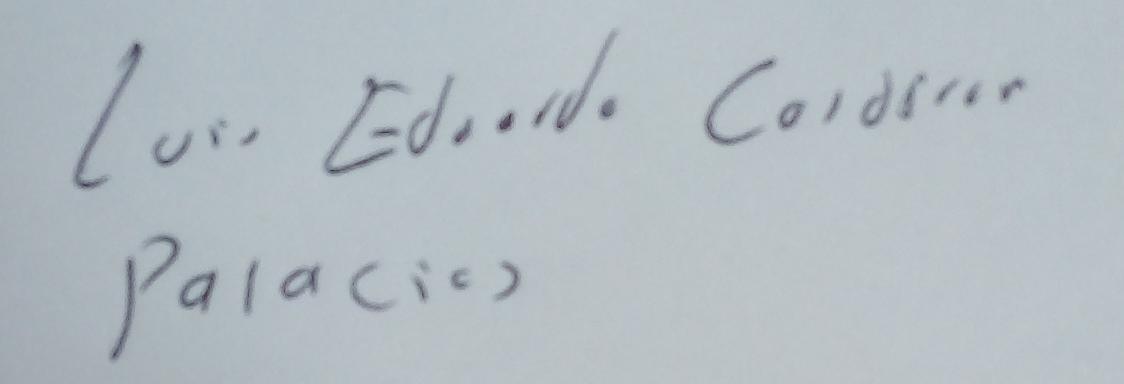 Luis Eduardo Corderar
Palacios